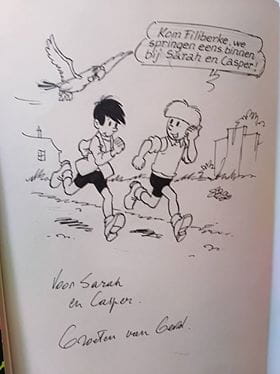 Kom Filiberke, we
springen eens binnen
bij Sarah en Casper!
Voor Sarah
en Casper.
Groeten van Gerd.